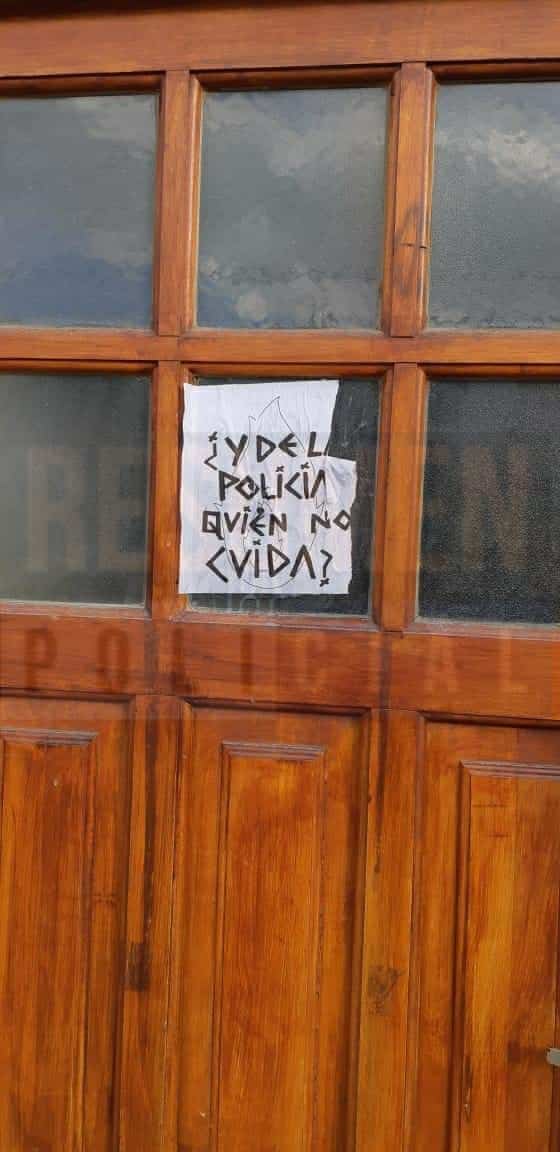 ¿Y DEL
POLICIA
QUIÉN NO
CUIDA?
POLICIAL